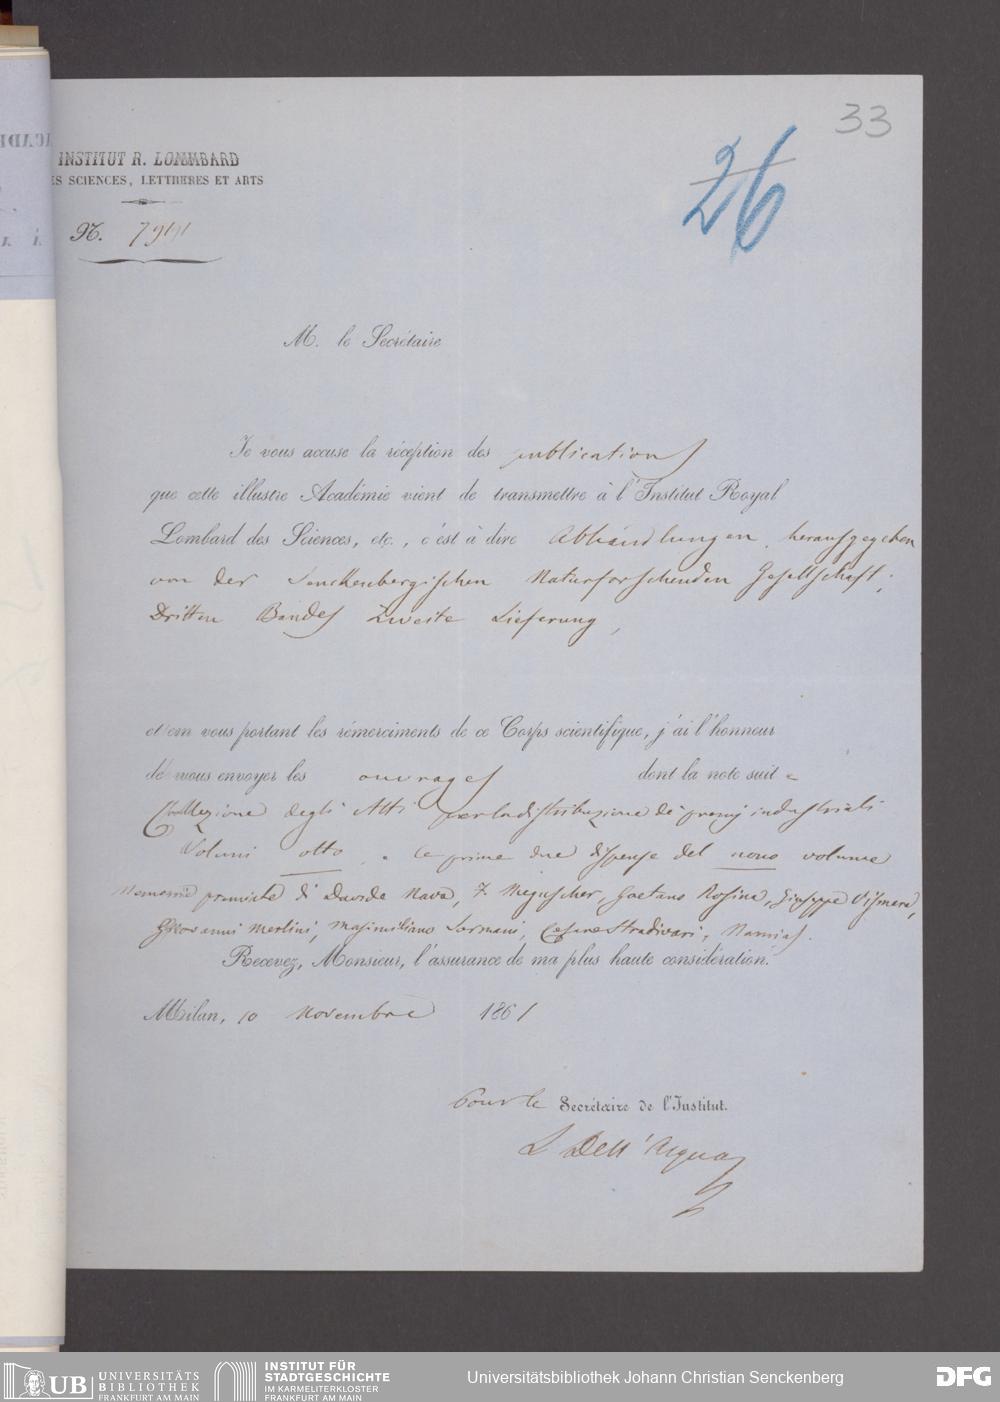 33
26
INSTITUT R. LOMMBARD
ES SCIENCES, LETTRERES ET ARTS
N. 7991
M. le Secrétaire
Je vous accuse la réception des publications
que cette illustre Académie vient de transmettre à l'Institut Royal
Lombard des Sciences, etc., c'est à dire Abhandlungen, herausgegeben
von der Senckenbergischen Naturforschenden Gesellschaft,
Dritten Bandes Zweite Lieferung,
et em vous portant les rémerciments de ce Corps scientifique, j'ai l'honneur
de vous envoyer les ouvrages dont la note suit =
Collezione degli Atti per la distribuzione de' premj industriali
Volumi otto, e le prime due dispense del nono volume
Memorie premiate di Davide Nava, Z. Meguscher, Gaetano Rosina, Giuseppe Vismara,
Giovanni Merlini, Massimiliano Sormani, Cesare Stradivari, Namias.
Recevez, Monsieur, l'assurance de ma plus haute considération.
Milan, 10 Novembre 1861
Pour le Secrétaire de l'Institut.
L Dell'Acqua
UB UNIVERSITÄTS
BIBLIOTHEK
FRANKFURT AM MAIN
INSTITUT FÜR
STADTGESCHICHTE
IM KARMELITERKLOSTER
FRANKFURT AM MAIN
Universitätsbibliothek Johann Christian Senckenberg
DFG